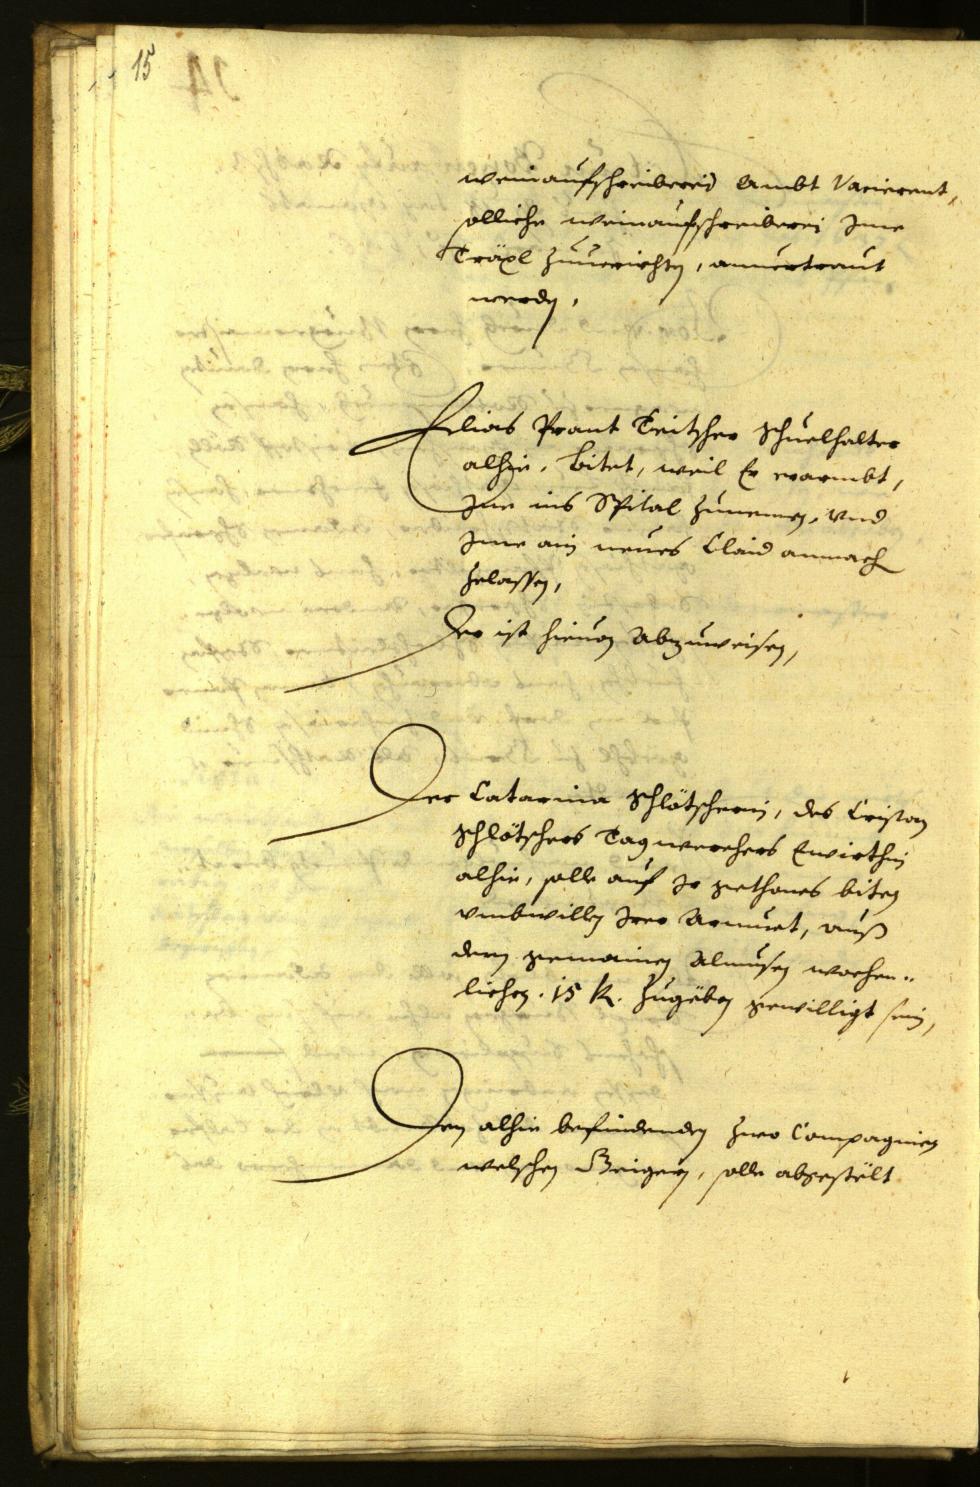 15
weinaufschreiberei Ambt Vacierent,
solliche weinaufschreiberei Ime
Träxl zuuerichtn, anuertraut
werdn,
Elias Prant Teitscher Schuelhalter
alhie, bitet, weil Er erarmbt,
Ime ins Spital zunemen, vnd
Ime ain neues Claid anmach
zelassen,
Der ist hieuon Abzuweisen,
Der Catarina Schlätscherin, des Cristan
Schlätschers Tagwerchers Ewirthin
alhie, solle auf Ir gethanes biten
vmbwillen Irer Armuet, auß
dem gemainen Almusen wochen-
lichen. 15 k. zugeben gewilligt sein,
Den alhie befindenden zwo Compagnien
welschen Geigern, solle abgestelt